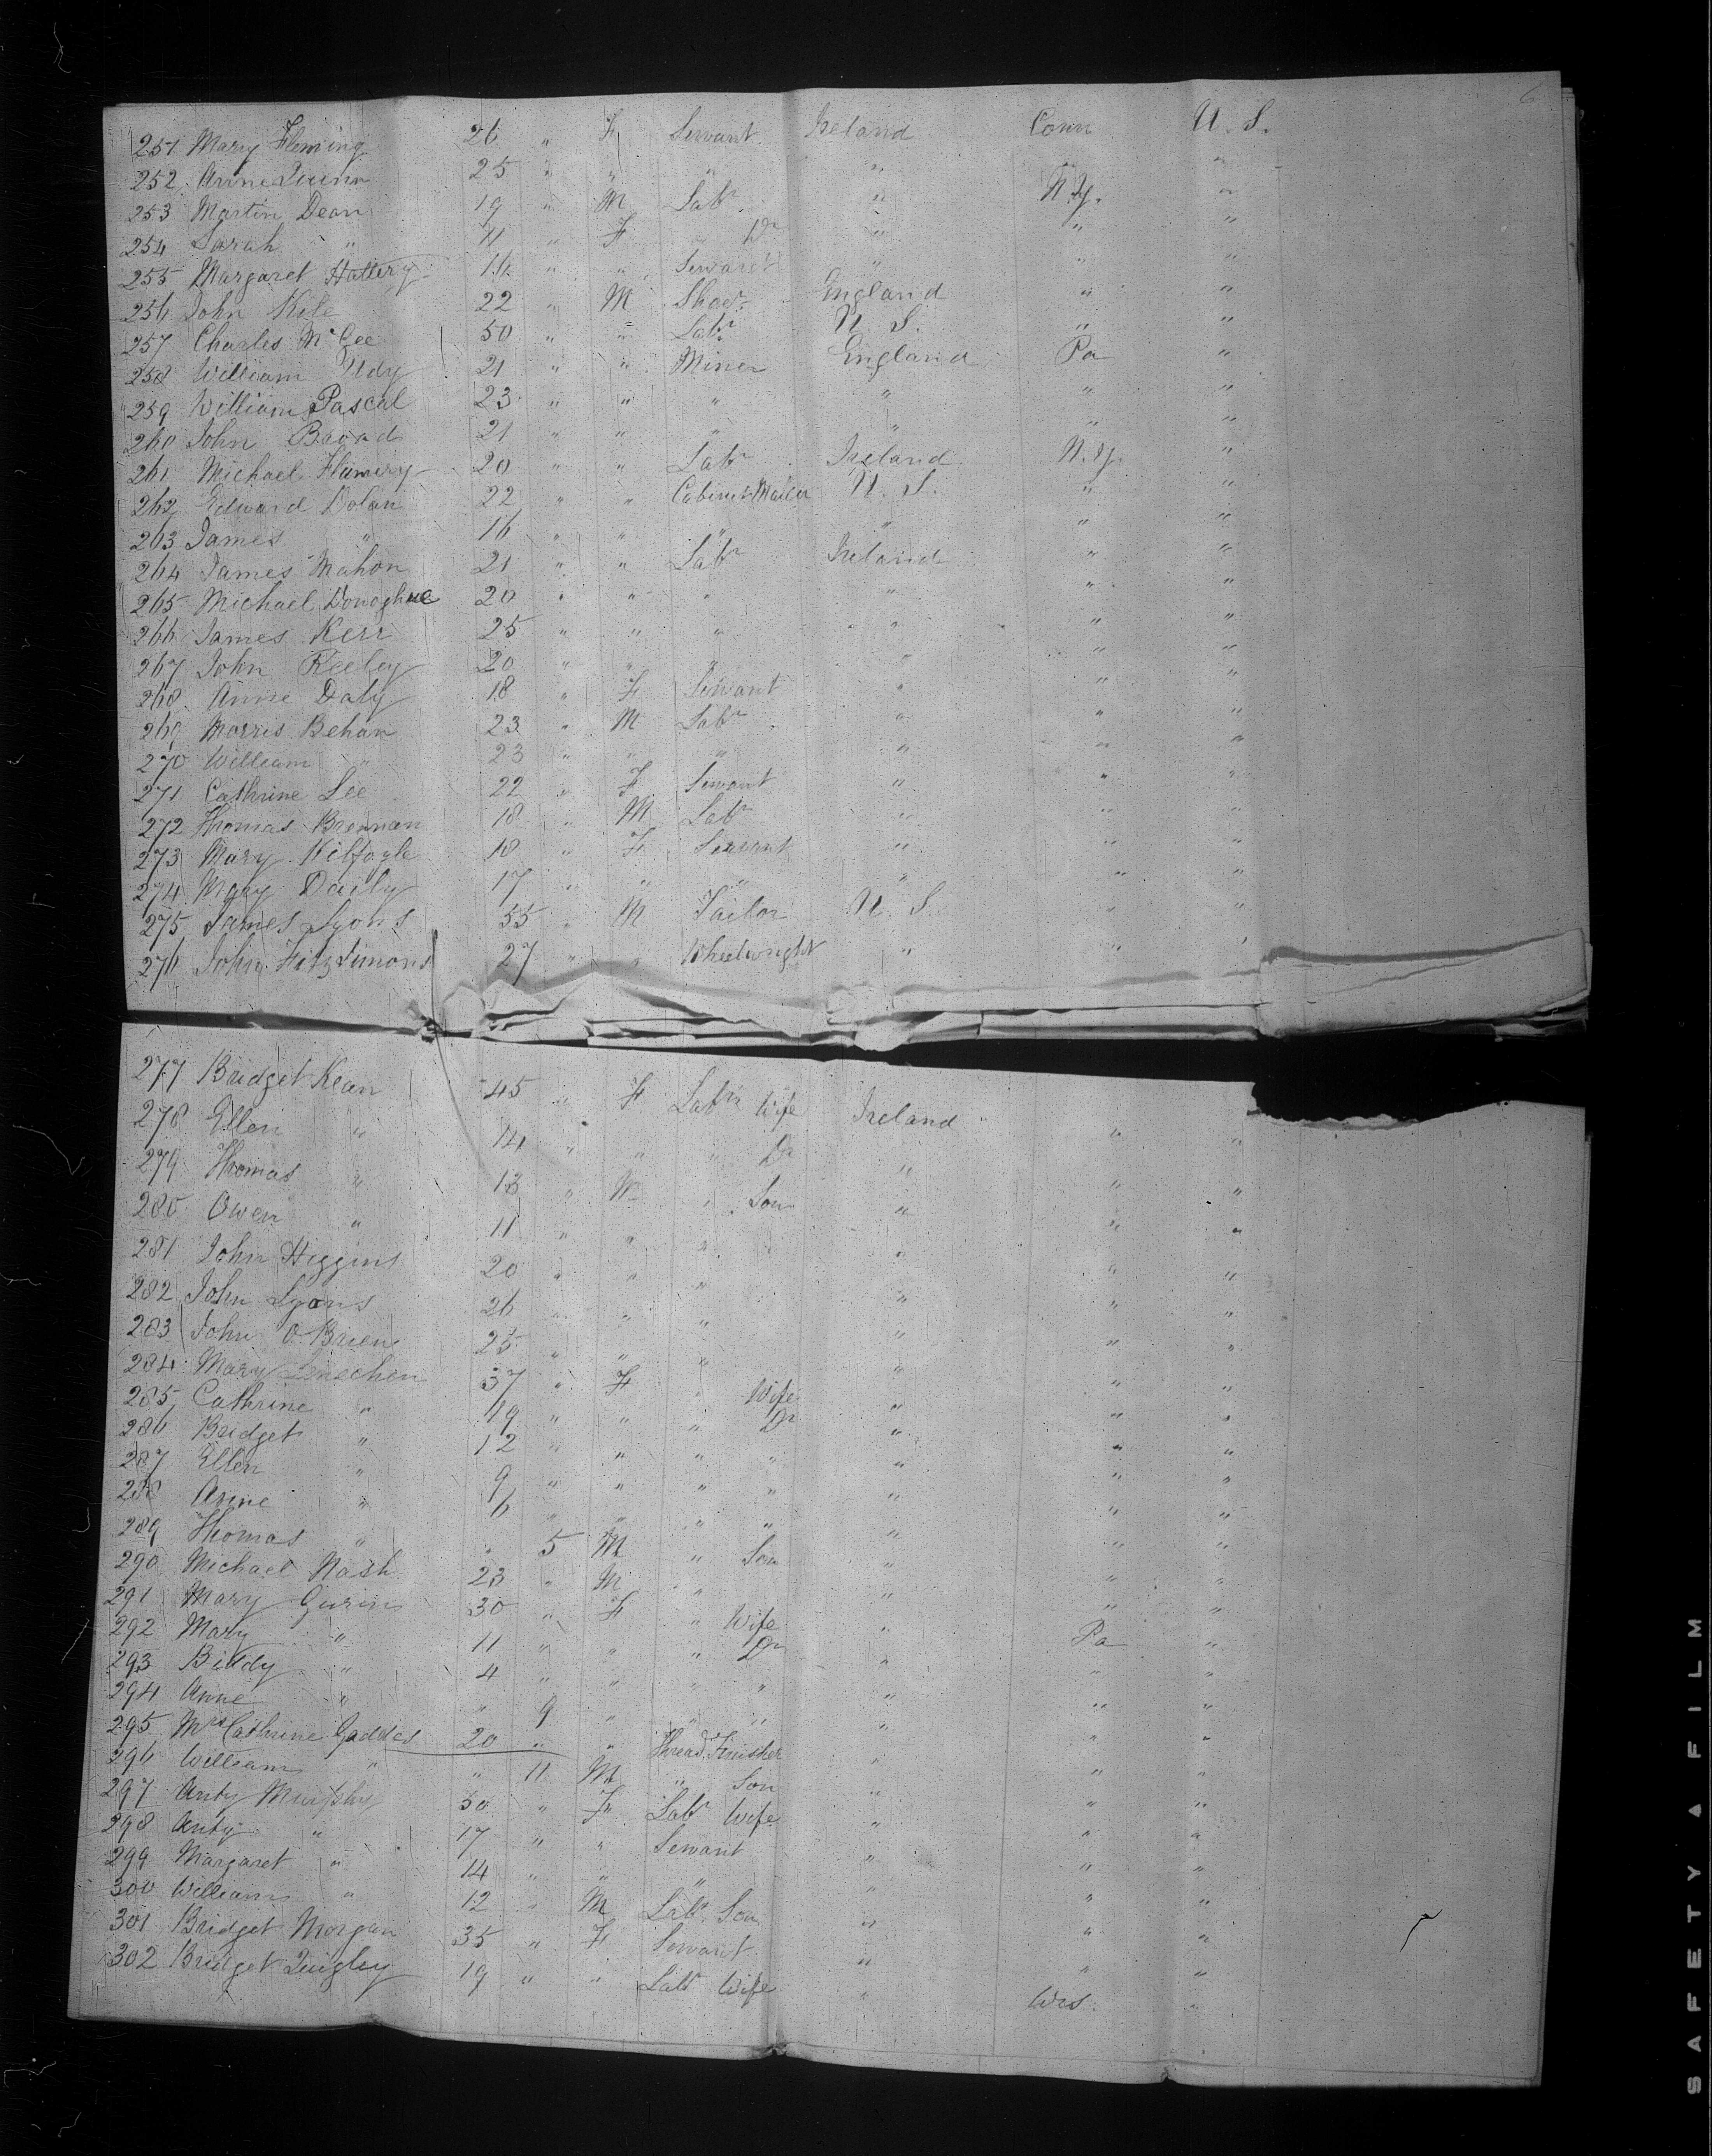 6
251 Mary Fleming 26 " F Servant Ireland Conn U. S.
252 Anne Quinn 25 " " " " " "
253 Martin Dean 19 " M Labr " N.Y. "
254 Sarah " 11 " F " Dr " " "
255 Margaret 16 " " Servant " " "
256 John Kile 22 " M Shoer England " "
257 Charles McGee 50 " " Labr U. S. " "
258 William Udy 21 " " Miner England Pa "
259 William Pascal 23 " " " " " "
260 John Broad 21 " " " " " "
261 Michael 20 " " Labr Ireland N.Y. "
262 Edward Dolan 22 " " Cabinet Maker U. S. " "
263 James " 16 " " " " " "
264 James Mahon 21 " " Labr Ireland " "
265 Michael Donoghue 20 " " " " " "
266 James Kerr 25 " " " " " "
267 John Reeley 20 " " " " " "
268 Anne Daly 18 " F Servant " " "
269 Morris Behan 23 " M Labr " " "
270 William " 23 " " " " " "
271 Cathrine Lee 22 " F Servant " " "
272 Thomas Brennan 18 " M Labr " " "
273 Mary Kilfoyle 18 " F Servant " " "
274 Mary Daily 17 " " " " " "
275 James Lyons 55 " M Tailor U. S. " "
276 John Fitzsimons 27 " " Wheelwright " " "
277 Bridget Kean 45 " F Labrs Wife Ireland " "
278 Ellen " 14 " " " Dr " " "
279 Thomas " 13 " M " Son " " "
280 Owen " 11 " " " " " " "
281 John Higgins 20 " " " " " "
282 John Lyons 26 " " " " " "
283 John O'Brien 25 " " " " " "
284 Mary 37 " F " Wife " " "
285 Cathrine " 19 " " " Dr " " "
286 Bridget " 12 " " " " " " "
287 Ellen " 9 " " " " " " "
288 Anne " 6 " " " " " " "
289 Thomas " " 5 M " Son " " "
290 Michael Nash 23 " M " " " "
291 Mary Gurin 30 " F " Wife " Pa "
292 Mary " 11 " " " Dr " " "
293 Biddy " 4 " " " " " " "
294 Anne " " 9 " " " " " "
295 Mrs Cathrine Gaddes 20 " " Thread Finisher " " "
296 William " " 11 M " Son " " "
297 Anty Murphy 50 " F Labr Wife " " "
298 Anty " 17 " " Servant " " "
299 Margaret " 14 " " " " " "
300 William " 12 " M Labr Son " " "
301 Bridget Morgan 35 " F Servant " " "
302 Bridget Quigley 19 " " Labr Wife " Wis. "
SAFETY FILM